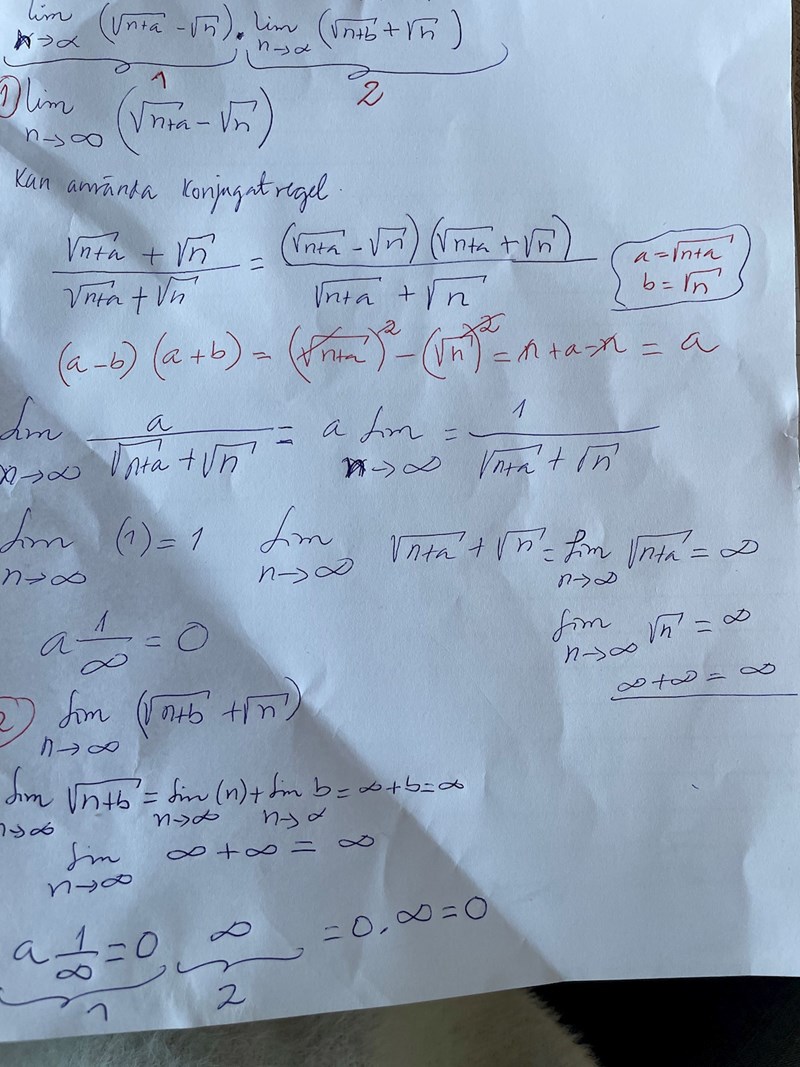 lim n→∞ (√n+a - √n) · lim n→∞ (√n+b + √n)
1 2
① lim n→∞ (√n+a - √n)
Kan använda konjugatregel.
√n+a + √n / √n+a + √n = (√n+a - √n)(√n+a + √n) / √n+a + √n
a=√n+a
b=√n
(a-b)(a+b) = (√n+a)² - (√n)² = n+a-n = a
lim n→∞ a / √n+a + √n = a lim n→∞ = 1 / √n+a + √n
lim n→∞ (1) = 1 lim n→∞ √n+a + √n = lim n→∞ √n+a = ∞
lim n→∞ √n = ∞
a 1/∞ = 0
∞+∞ = ∞
② lim n→∞ (√n+b + √n)
lim n→∞ √n+b = lim n→∞ (n) + lim n→∞ b = ∞+b = ∞
lim n→∞ ∞+∞ = ∞
a 1/∞ = 0 ∞ = 0. ∞ = 0
1 2